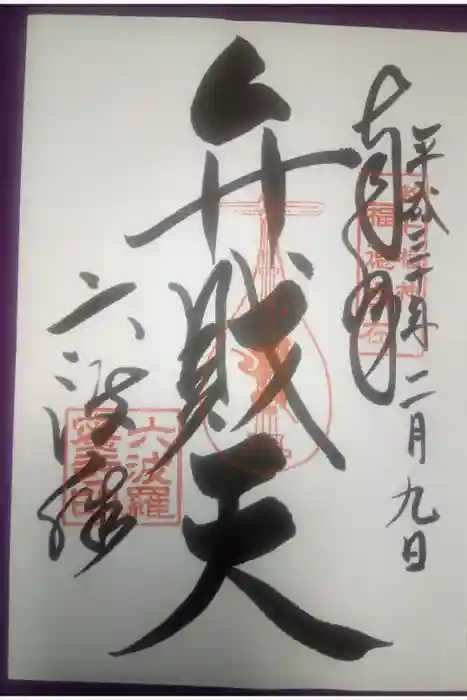 平成三十年二月九日
奉拝
弁財天
六波羅
六波羅